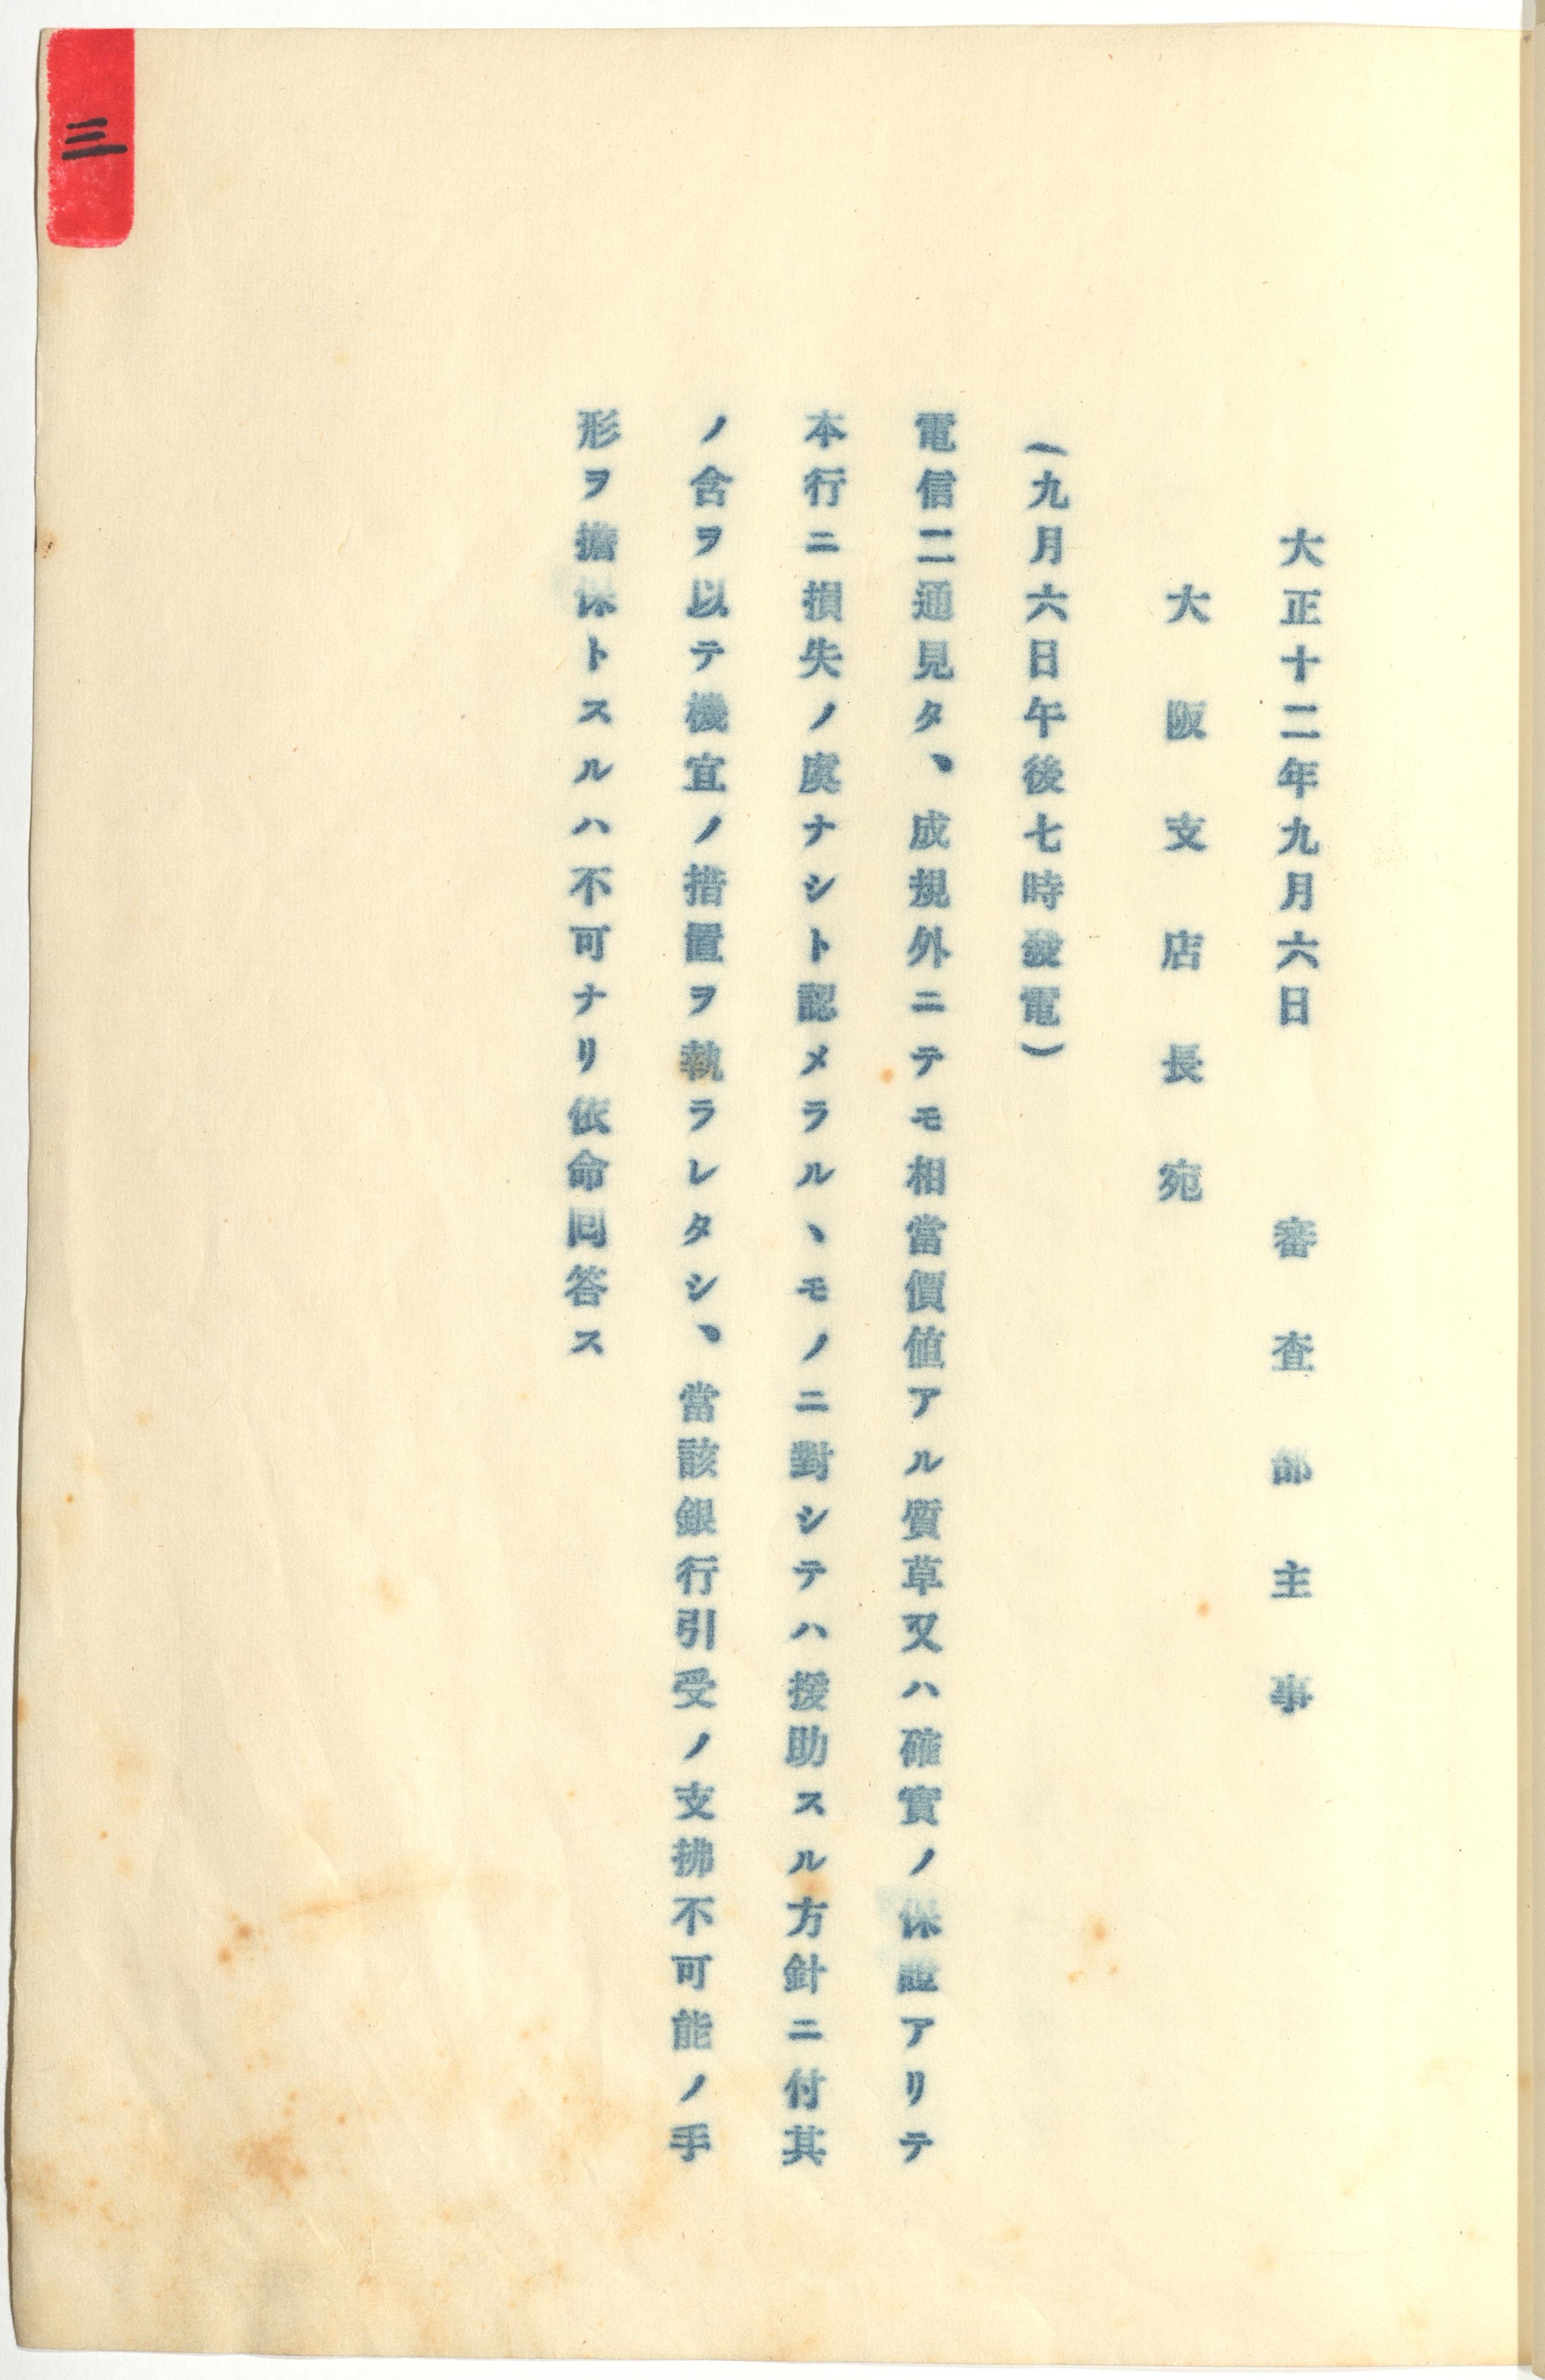 三
大正十二年九月六日 審査部主事
大阪支店長宛
(九月六日午後七時發電)
電信二通見タ、成規外ニテモ相當價値アル質草又ハ確實ノ保證アリテ
本行ニ損失ノ虞ナシト認メラルヽモノニ對シテハ援助スル方針ニ付其
ノ含ヲ以テ機宜ノ措置ヲ執ラレタシ、當該銀行引受ノ支拂不可能ノ手
形ヲ擔保トスルハ不可ナリ依命囘答ス